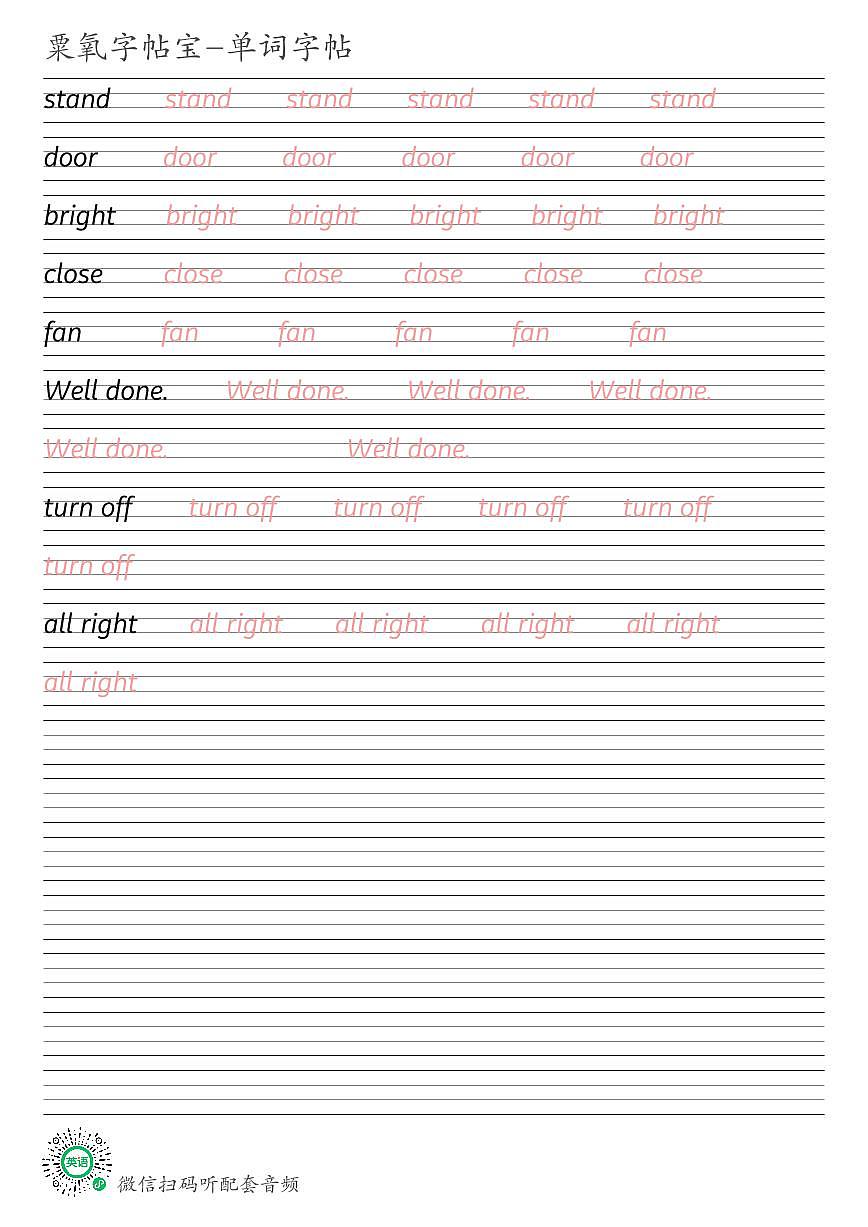 粟氧字帖宝-单词字帖
stand stand stand stand stand stand
door door door door door door
bright bright bright bright bright bright
close close close close close close
fan fan fan fan fan fan
Well done. Well done. Well done. Well done.
Well done. Well done.
turn off turn off turn off turn off turn off
turn off
all right all right all right all right all right
all right
英语
微信扫码听配套音频